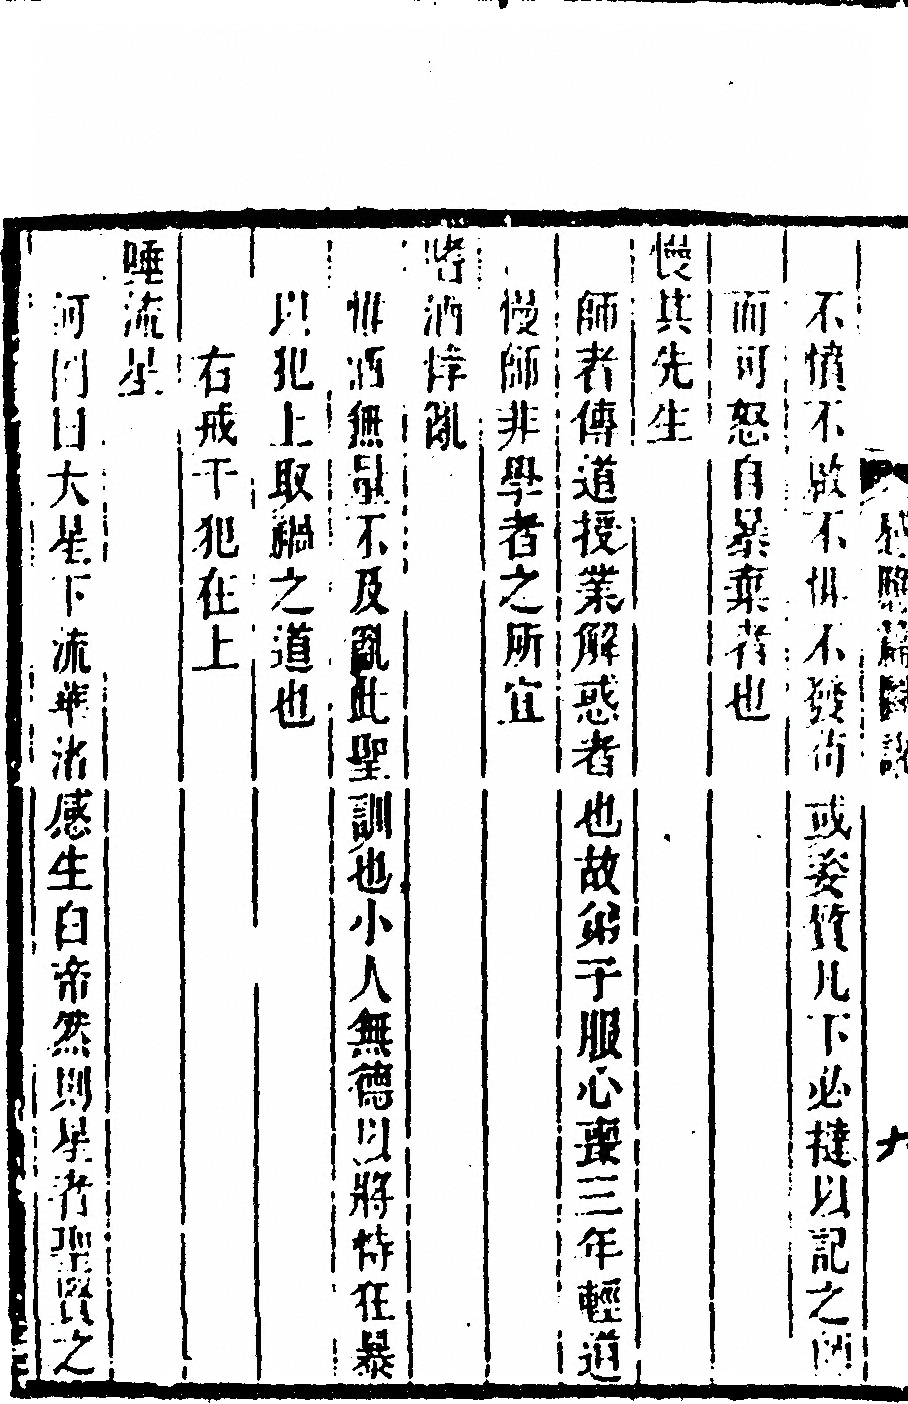 不憤不啟不悱不發苟或姿質凡下必撻以記之師
而可怒自暴棄者也
慢其先生
師者傳道授業解惑者也故弟子服心喪三年輕道
慢師非學者之所宜
嗜酒悖亂
惟酒無量不及亂此聖訓也小人無德以將恃狂暴
以犯上取禍之道也
右戒干犯在上
唾流星
河圖曰大星下流華渚感生白帝然則星者聖賢之